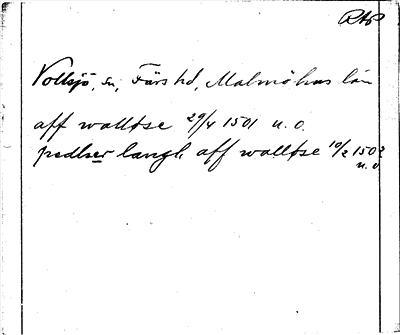 RAP
Vollsjö, sn, Färs hd, Malmöhus län
aff walløse 29/4 1501 u.o.
pedher langh aff walløse 10/2 1502
u.o